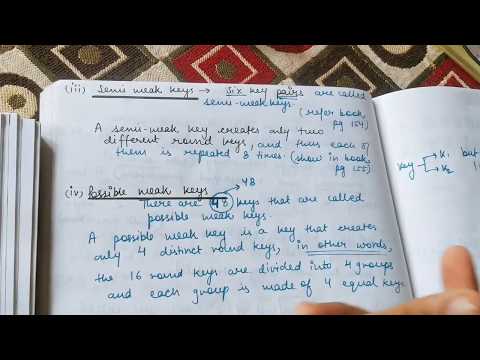 (iii) Semi weak keys → Six key pairs are called
semi-weak keys.
(refer book
pg 154)
A semi-weak key creates only two
different round keys, and thus each of
them is repeated 8 times (show in book
pg 155)
(iv) Possible weak keys → 48
There are 48 keys that are called
possible weak keys.
A possible weak key is a key that creates
only 4 distinct round keys, in other words,
the 16 round keys are divided into 4 groups
and each group is made of 4 equal keys
key K1
K2
but